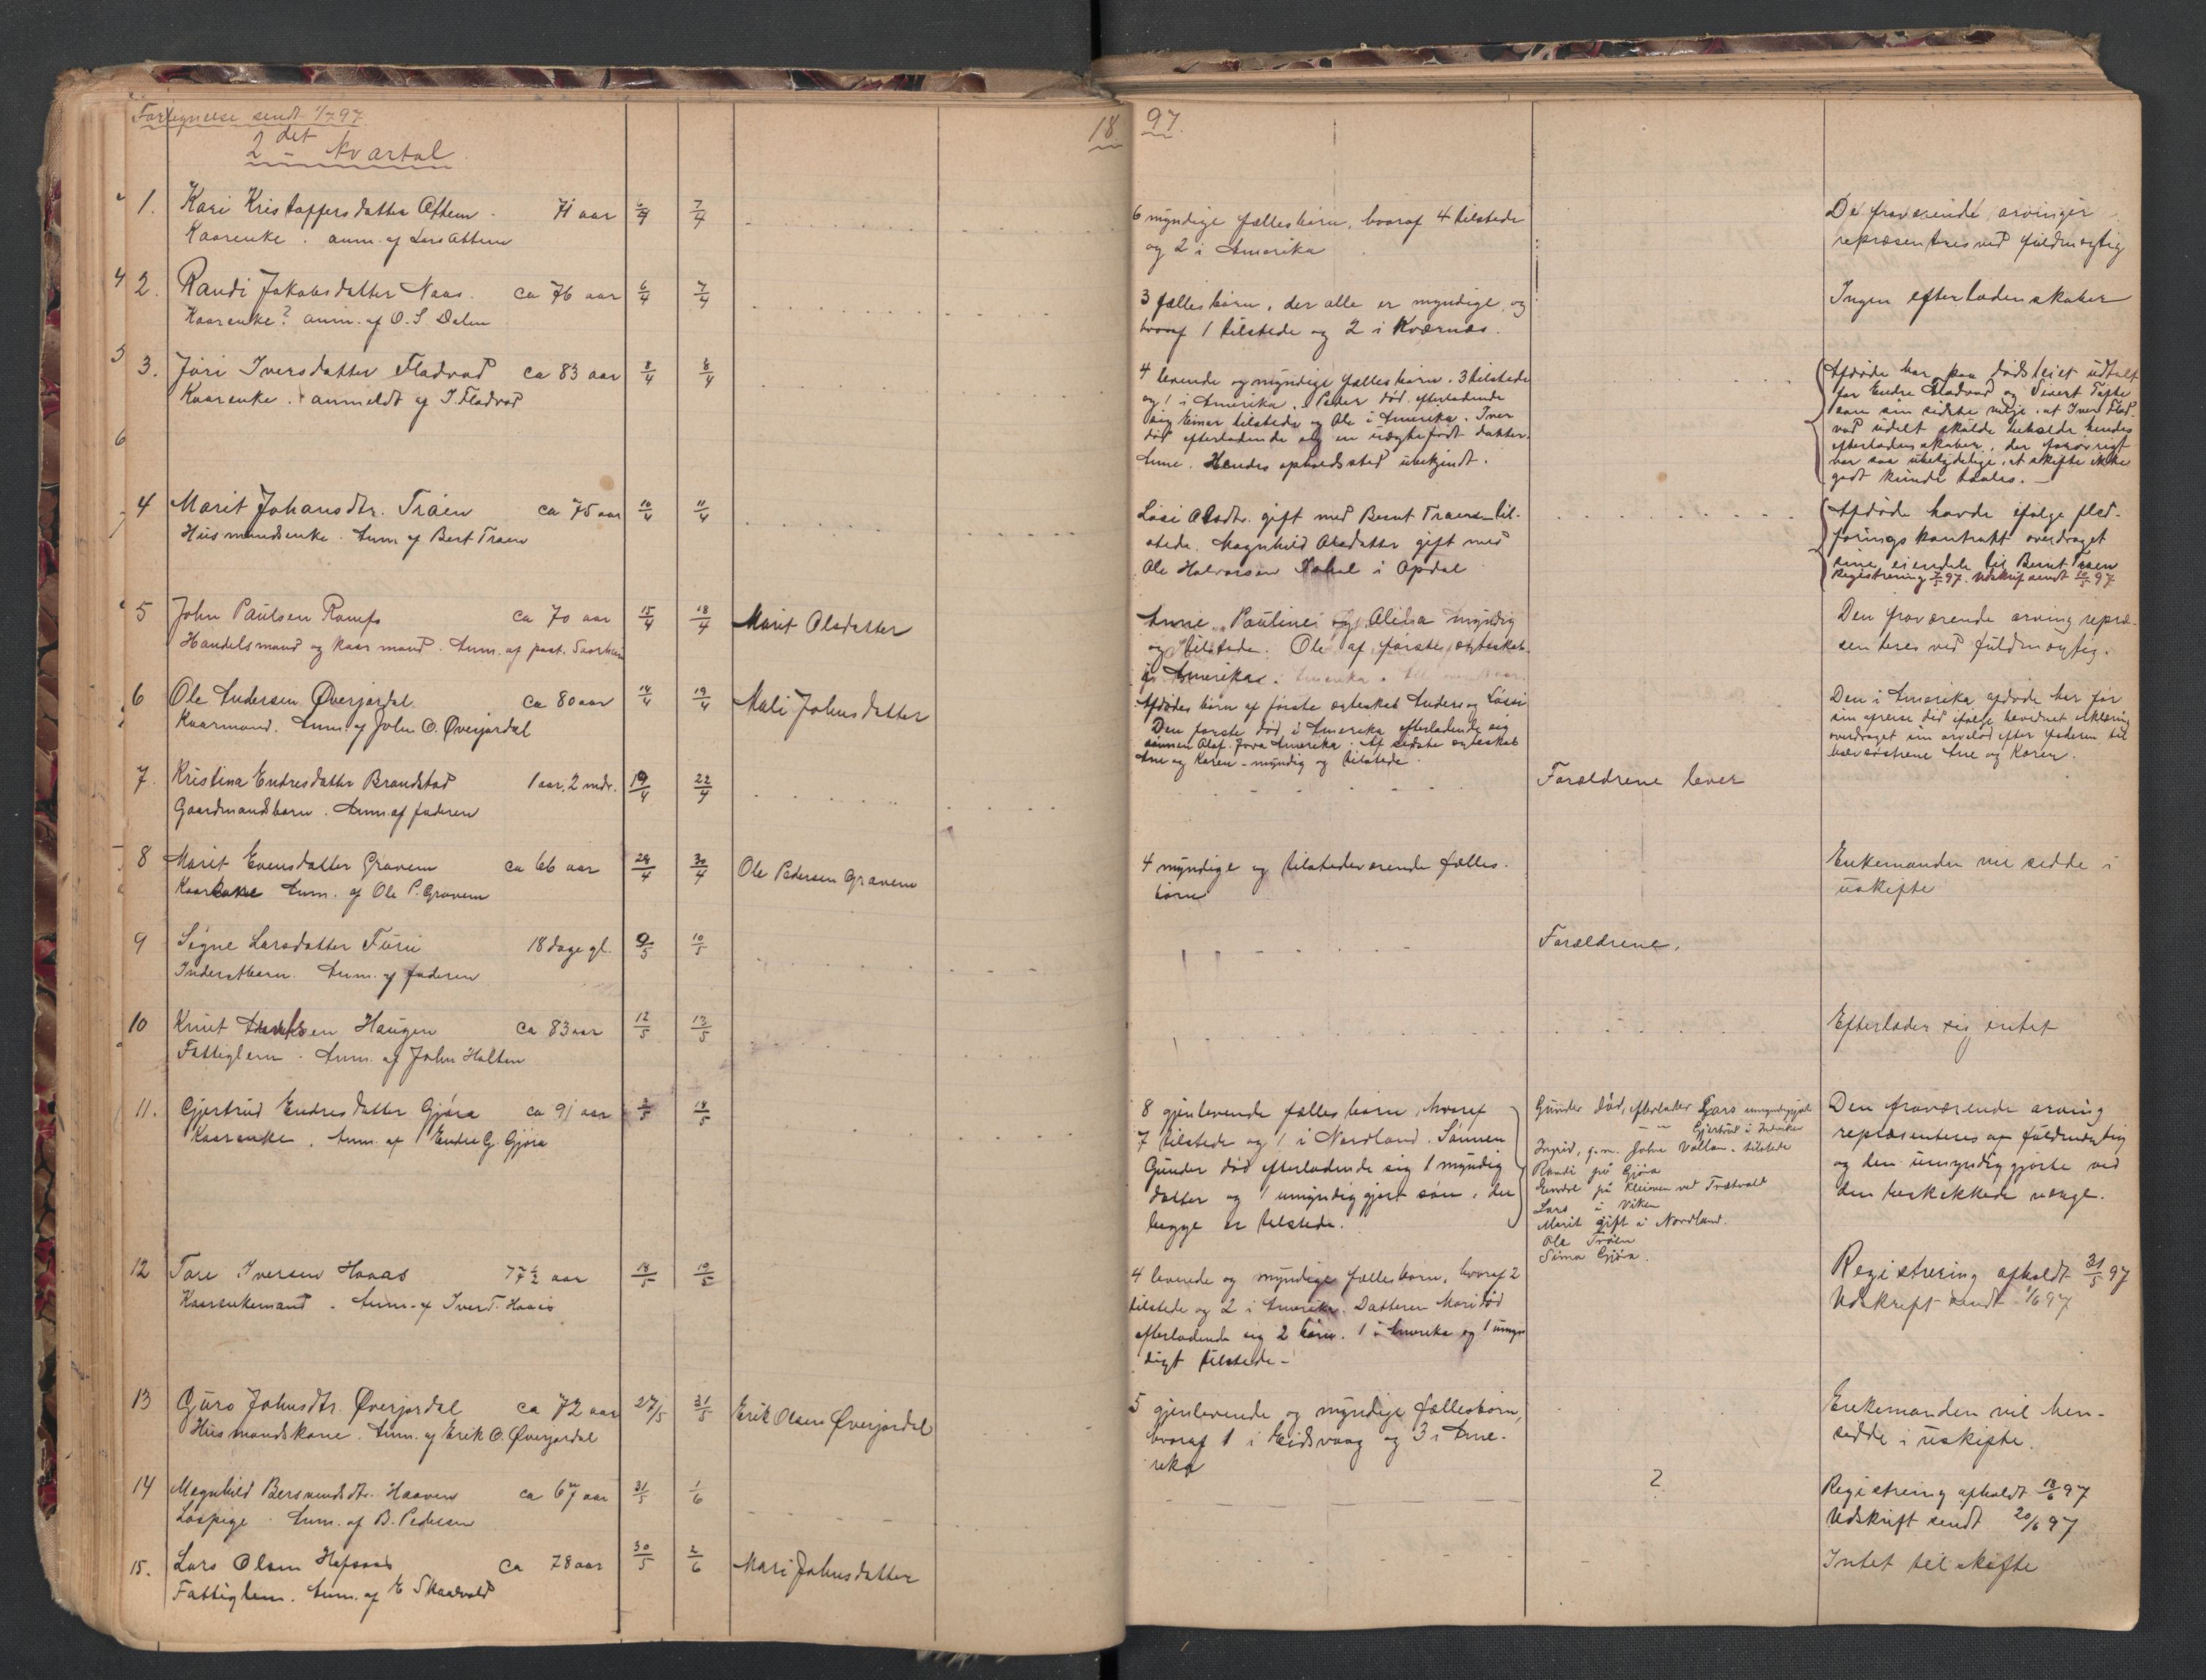 Fortegnelse sendt 1/7 97
2det Kvartal
18 97.
1. Kari Kristoffersdatter Ottem. 71 aar 6/4 7/4
Kaarenke. anm. af Lars Ottem
6 myndige fællesbørn, hvoraf 4 tilstede
og 2 i Amerika
De fraværende arvinger
repræsenteres ved fuldmægtig
2. Randi Jakobsdatter Naas. ca 76 aar 6/4 7/4
Kaarenke? anm. af O. S. Dalen
3 fællesbørn, der alle er myndige, og
hvoraf 1 tilstede og 2 i Kværnæs.
Ingen efterladenskaber
3. Jøri Iversdatter Fladvad ca 83 aar 8/4 8/4
Kaarenke. anmeldt af I. Fladvad
4 levende og myndige fællesbørn. 3 tilstede
og 1 i Amerika. Peder død efterladende
sig Einar tilstede og Ole i Amerika. Iver
død efterladende sig en uægtefødt datter
Anne. Hendes opholdssted ubekjendt.
Afdøde har paa dødsleiet udtalt
for Endre Fladvad og Sivert
som sin sidste vilje, at Iver Flad-
vad udelt skulde beholde hendes
efterladenskaber, der forøvrigt
var saa ubetydelige, at skifte ikke
godt kunde taales.
4 Marit Johansdtr. Traen ca 75 aar 10/4 11/4
Husmandsenke. Anm. af Bert Traen
Losi Olsdtr. gift med Bernt Traen - til-
stede. Magnhild Olsdatter gift med
Ole Halvorsen i Opdal
Afdøde havde ifølge flæd-
føringskontrakt overdraget
sine eiendele til Bernt Traen
Registrering 7/5 97. Udskrift sendt 10/5 97
5 John Paulsen Romfo ca 70 aar 15/4 18/4 Marit Olsdatter
Handelsmand og kaarmand. Anm. af past. Saxhus
Anne, Pauline og Alida myndig
og tilstede. Ole af første ægteskab
i Amerika.
Den fraværende arving repræ-
senteres ved fuldmægtig.
6 Ole Andersen Øverjordal. ca 80 aar 18/4 19/4 Mali Johnsdatter
Kaarmand. Anm. af John O. Øverjordal
Afdødes børn af første ægteskab Anders og Løssi
Den første død i Amerika efterladende sig
sønnen Olaf. Amerika. Af sidste ægteskab
Ane og Karen - myndig og tilstede.
Den i Amerika afdøde har før
sin afreise did ifølge bevidnet erklæring
overdraget sin arvelod efter faderen til
halvsøstrene Ane og Karen.
7. Kristina Endresdatter Brandstad 1 aar, 2 mdr. 19/4 22/4
Gaardmandsbarn. Anm. af faderen
Forældrene lever
8 Marit Evensdatter Gravem ca 66 aar 28/4 30/4 Ole Pedersen Gravem
Kaarkone Anm. af Ole P. Gravem
4 myndige og tilstedeværende fælles-
børn
Enkemanden vil sidde i
uskifte
9 Signe Larsdatter Furu 18 dage gl. 9/5 10/5
Inderstbarn. Anm. af faderen
Forældrene.
10 Knut Haugen ca 83 aar 12/5 13/5
Fattiglem. Anm. af John Holten
Efterlader sig intet
11. Gjertrud Endresdatter Gjøra ca 91 aar 3/5 18/5
Kaarenke. Anm. af Endre G. Gjøra
8 gjenlevende fællesbørn, hvoraf
7 tilstede og 1 i Nordland. Sønnen
Gunder død efterladende sig 1 myndig
datter og 1 umyndiggjort søn, der
begge er tilstede.
Gunder død, efterlader Lars umyndiggjort
" " Gjertrud i
Ingrid, g. m. John Vollan - tilstede
Randi på Gjøra
Endre på Kleiven ved Trætvold
Lars i Viken
Marit gift i Nordland.
Ole Trøen
Sima Gjøra.
Den fraværende arving
repræsenteres af fuldmægtig
og den umyndiggjorte ved
den beskikkede værge.
12 Tore Iversen Hoaas 77 1/2 aar 18/5 19/5
Kaarenkemand. Anm. af Iver T. Hoaas
4 levende og myndige fællesbørn, hvoraf 2
tilstede og 2 i Amerika. Datteren Mari død
efterladende sig 2 børn. 1 i Amerika og 1 umyn-
digt tilstede -
Registrering afholdt 31/5 97
Udskrift sendt 1/6 97
13 Guro Johnsdtr. Øverjordal ca 72 aar 27/5 31/5 Erik Olsen Øverjordal
Husmandskone. Anm. af Erik O. Øverjordal
5 gjenlevende og myndige fællesbørn,
hvoraf 1 i Eidsvaag og 3 i Ame-
rika
Enkemanden vil hen-
sidde i uskifte.
14 Magnhild Bersvendsdtr. Haaven ca 67 aar 31/5 1/6
Løspige. Anm. af B. Pedersen
?
Registrering afholdt 18/6 97
Udskrift sendt 20/6 97
15. Lars Olsen Hafsaas ca 78 aar 30/5 2/6 Mari Johnsdatter
Fattiglem. Anm. af E Skaarvold
Intet til skifte